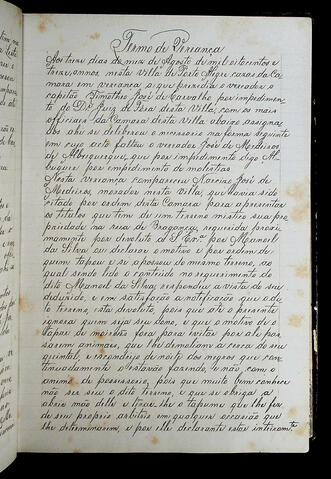 Termo de Vereança
Aos treze dias do mez de Agosto de mil oitocentos e
treze, annos nesta Villa de Porto Alegre cazas da Ca-
mara em vereança a que prezidio o vereador o
capitão Timotheo José de Carvalho por impedimen-
to do Dr. Juiz de Fora desta Villa, com os mais
officiaes da Camara desta villa abaixo assigna-
dos ahi se deliberou o necessario na forma seguinte
em cujo acto faltou o vereador José de Medeiros
de Albuquerque, que por impedimento digo Al-
buquer por impedimento de molestias
Nesta vereança compareceu Narcizo José de
Medeiros, morador nesta Villa, que havia sido
citado por ordem desta Camara para apresentar
os titulos que tem de um terreno mistico sua pro-
priedade na rua de Bragança, requerida proxi-
mamente por devoluto a S. Ex.ª por Manoel
da Silva ou declarar o motivo e por ordem de
quem tapou e se apossou do mesmo terreno, ao
qual sendo lido o conteúdo no requerimento do
dito Manoel da Silva respondeu a vista do seu
deduzido, e em satisfação a notificação que o di-
to terreno, esta devoluto, pois que até o presente
ignora quem seja seu dono, e que o motivo de o
tapar de
para evitar por ali pas-
sarem animaes, que lhe demoliam a cerca do seu
quintal, e escondrijo de noite dos negros que con-
tinuadamente estavão fazendo, e não com o
animo de possessorio, pois que muito bem conhece
não ser seu o dito terreno, e que se obriga a
abrir mão delle e tirar-lhe o tapume que lhe fez
de seu proprio arbitrio em qualquer occasião que
lhe determinarem, e por elle declarante estar inteiram.te